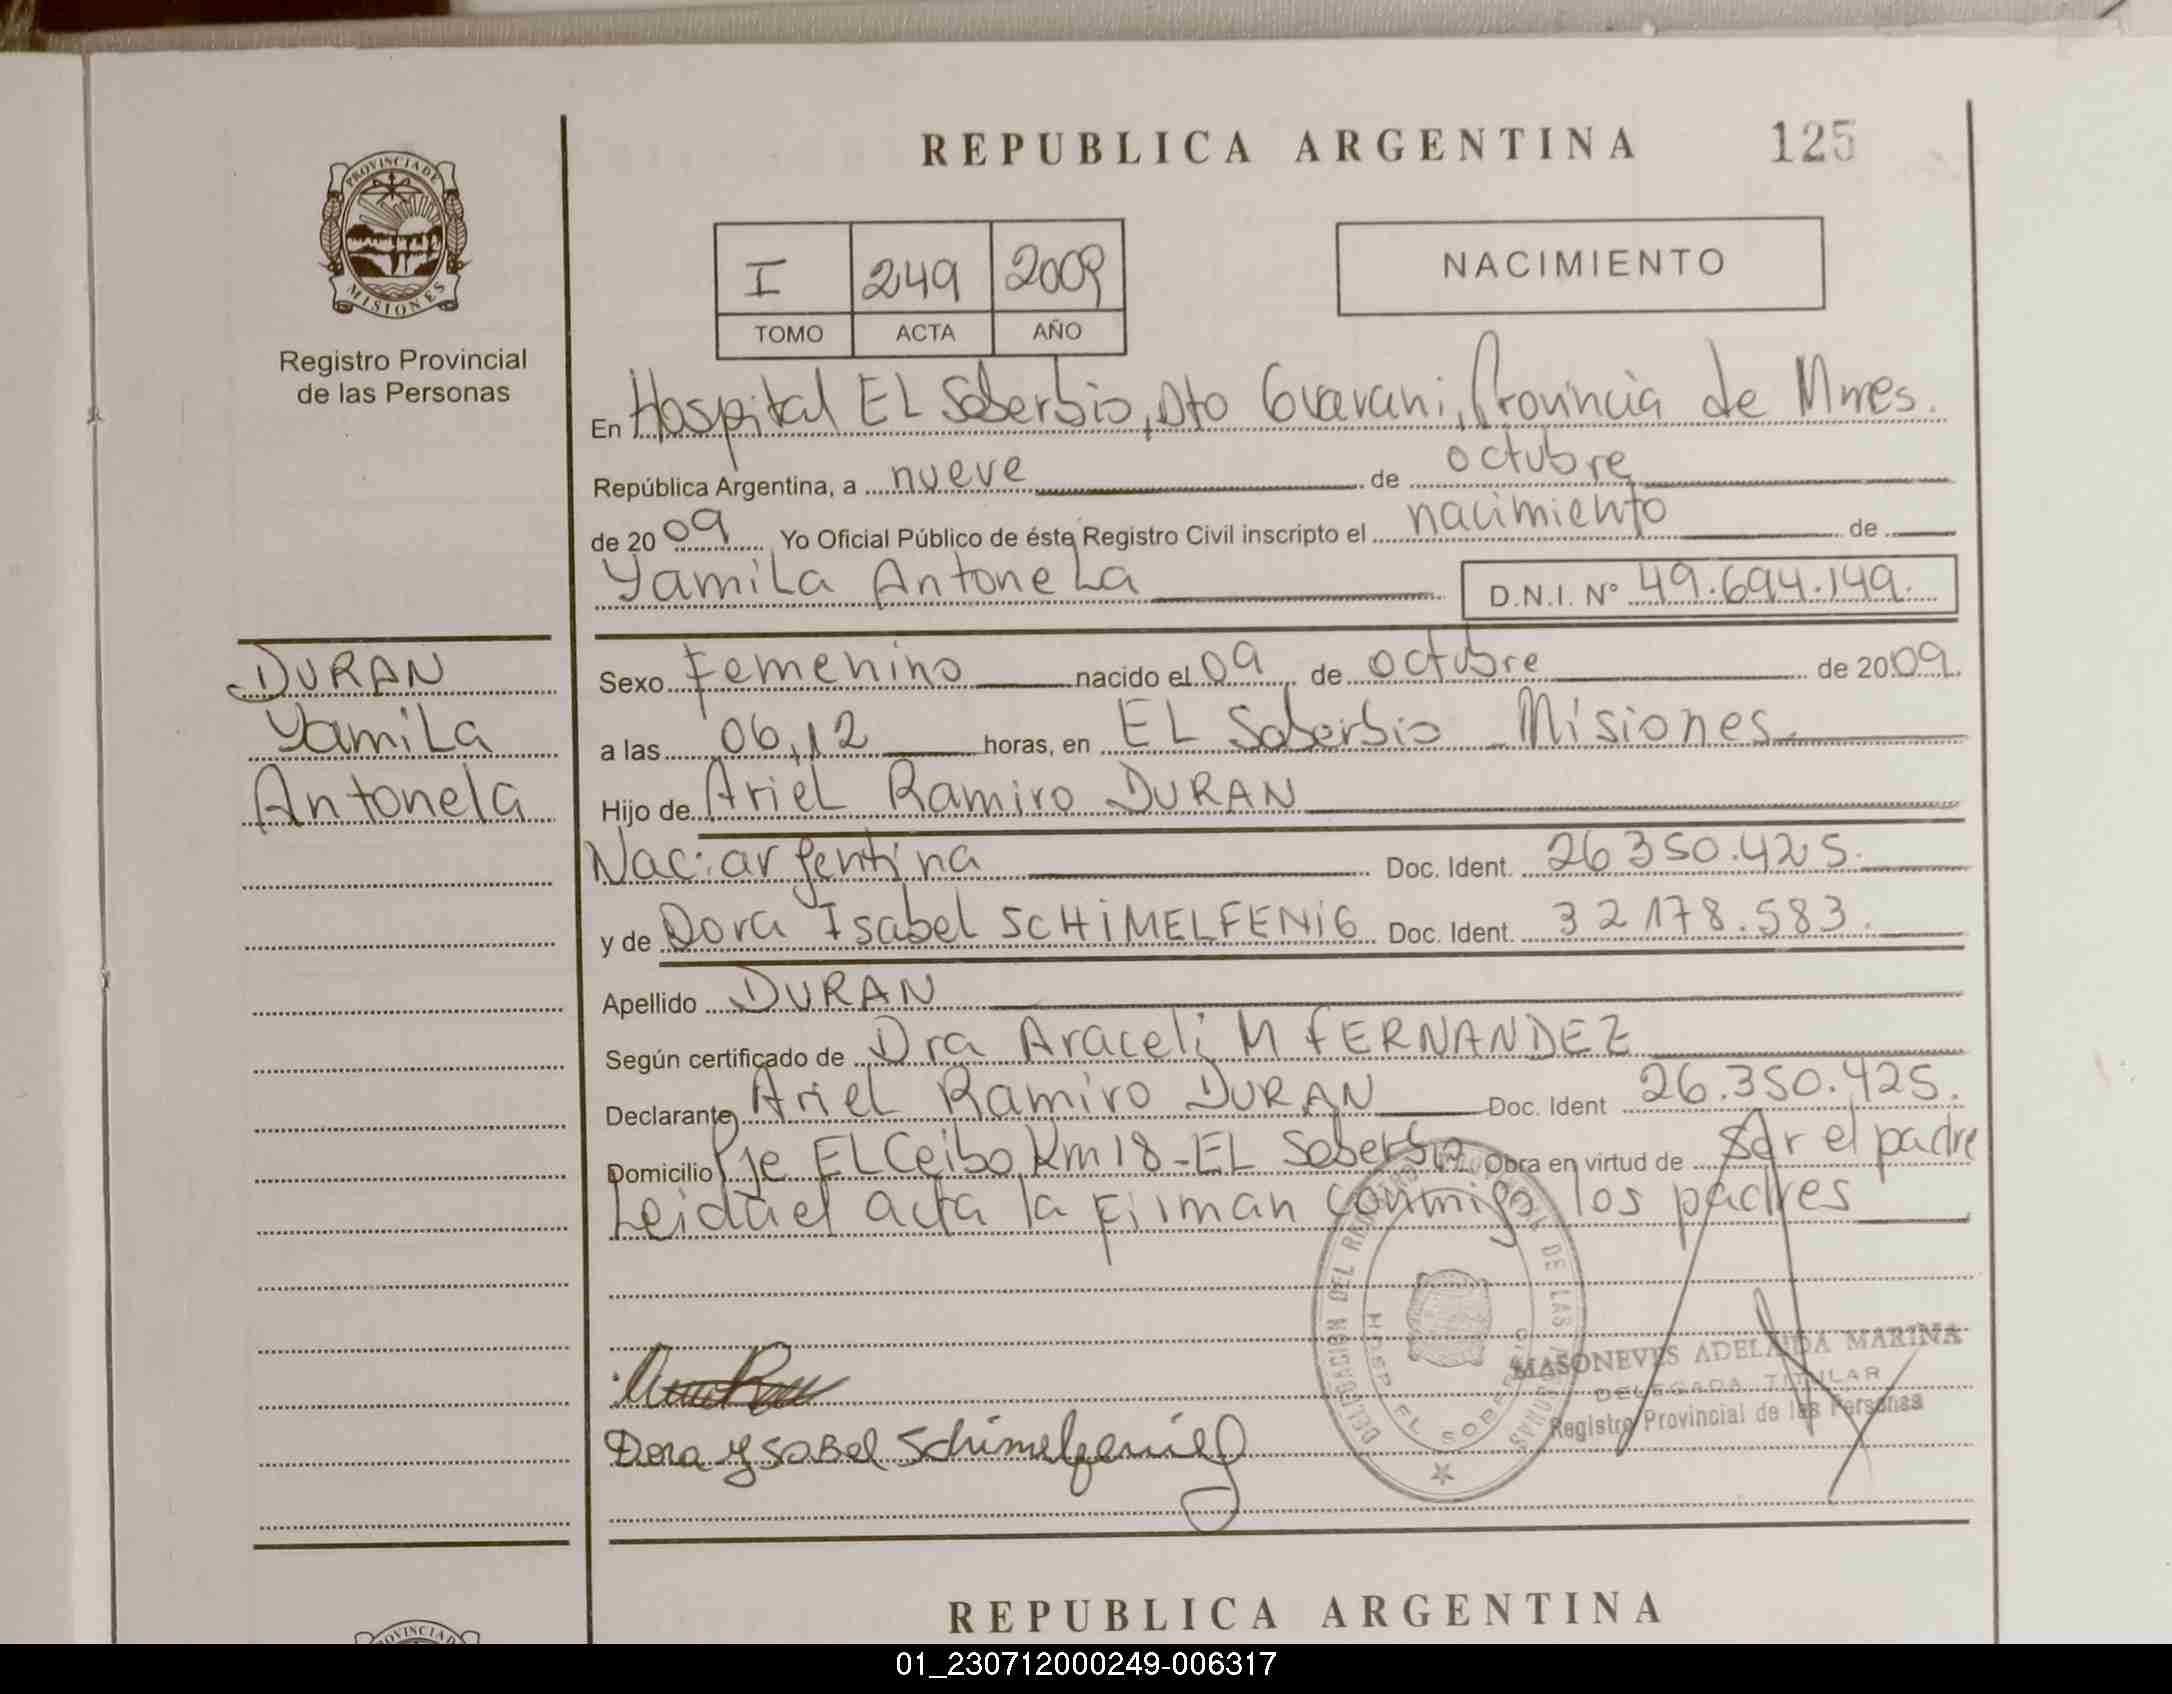 REPUBLICA ARGENTINA 125
PROVINCIA DE
MISIONES
Registro Provincial
de las Personas
I 249 2009
TOMO ACTA AÑO
NACIMIENTO
En Hospital EL Soberbio, Dto Guarani, Provincia de Mnes.
República Argentina, a nueve de octubre
de 2009 Yo Oficial Público de éste Registro Civil inscripto el nacimiento de
Yamila Antonela D.N.I. Nº 49.694.149.
DURAN
Yamila
Antonela
Sexo Femenino nacido el 09 de octubre de 2009.
a las 06,12 horas, en EL Soberbio - Misiones
Hijo de Ariel Ramiro DURAN
Nac: argentina Doc. Ident. 26 350.425.
y de Dora Isabel SCHIMELFENIG Doc. Ident. 32 178.583.
Apellido DURAN
Según certificado de Dra Araceli M FERNANDEZ
Declarante Ariel Ramiro DURAN Doc. Ident 26.350.425.
Domicilio Pje EL Ceibo Km 18 - EL Soberbio Obra en virtud de ser el padre
Leida el acta la firman conmigo los padres
DELEGACION DEL DE LAS
HOSP EL SOBERBIO
MASONEVES ADELAIDA MARINA
DELEGADA TITULAR
Registro Provincial de las Personas
Dora Ysabel Schimelfenig
REPUBLICA ARGENTINA
01_230712000249-006317